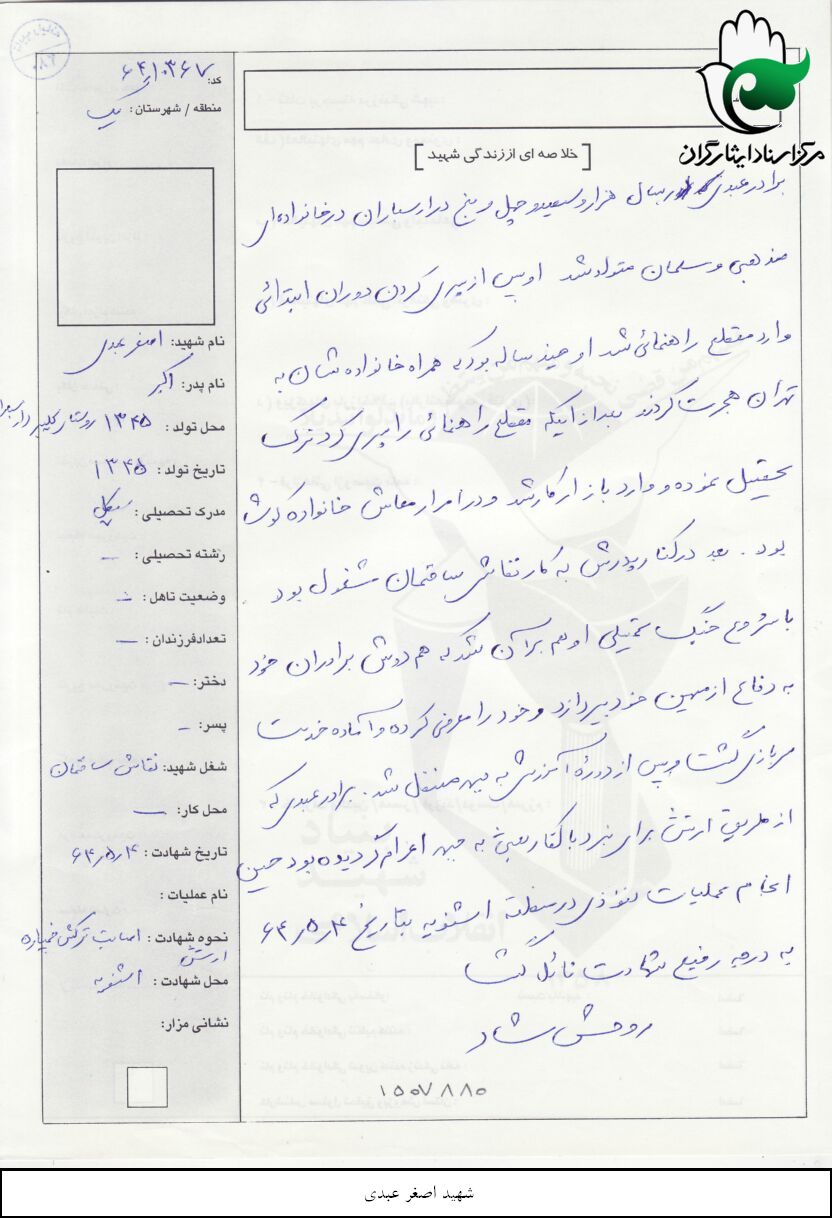 مرکز اسناد ایثارگران
کد: ۶۴۱۰۳۶۷
منطقه / شهرستان: یک
خلاصه ای از زندگی شهید
برادر عبدی در سال هزار و سیصد و چهل و پنج در ارسباران در خانواده ای
مذهبی و مسلمان متولد شد او پس از سپری کردن دوران ابتدائی
وارد مقطع راهنمائی شد او چند ساله بود که همراه خانواده شان به
تهران هجرت کردند بعد از اینکه مقطع راهنمائی را سپری کرد ترک
تحصیل نموده و وارد بازار کار شد و در امرار معاش خانواده کوشا
بود . بعد در کنار پدرش به کار نقاشی ساختمان مشغول بود
با شروع جنگ تحمیلی او هم بر آن شد که هم دوش برادران خود
به دفاع از میهن خود بپردازد و خود را معرفی کرده و آماده خدمت
سربازی گشت و پس از دوره آموزشی به جبهه منتقل شد . برادر عبدی که
از طریق ارتش برای نبرد با کفار بعثی به جبهه اعزام گردیده بود حین
انجام عملیات نفوذی در منطقه اشنویه بتاریخ ۶۴٫۵٫۴
به درجه رفیع شهادت نائل گشت
روحش شاد
۱۵۵۷۸۸۰
نام شهید: اصغر عبدی
نام پدر: اکبر
محل تولد : ۱۳۴۵ روستای کلیبر
تاریخ تولد : ۱۳۴۵
مدرک تحصیلی : سیکل
رشته تحصیلی : —
وضعیت تاهل :
تعداد فرزندان : —
دختر: —
پسر: —
شغل شهید: نقاش ساختمان
محل کار: —
تاریخ شهادت : ۶۴٫۵٫۴
نام عملیات :
نحوه شهادت : اصابت ترکش خمپاره
ارتش
محل شهادت : اشنویه
نشانی مزار:
شهید اصغر عبدی